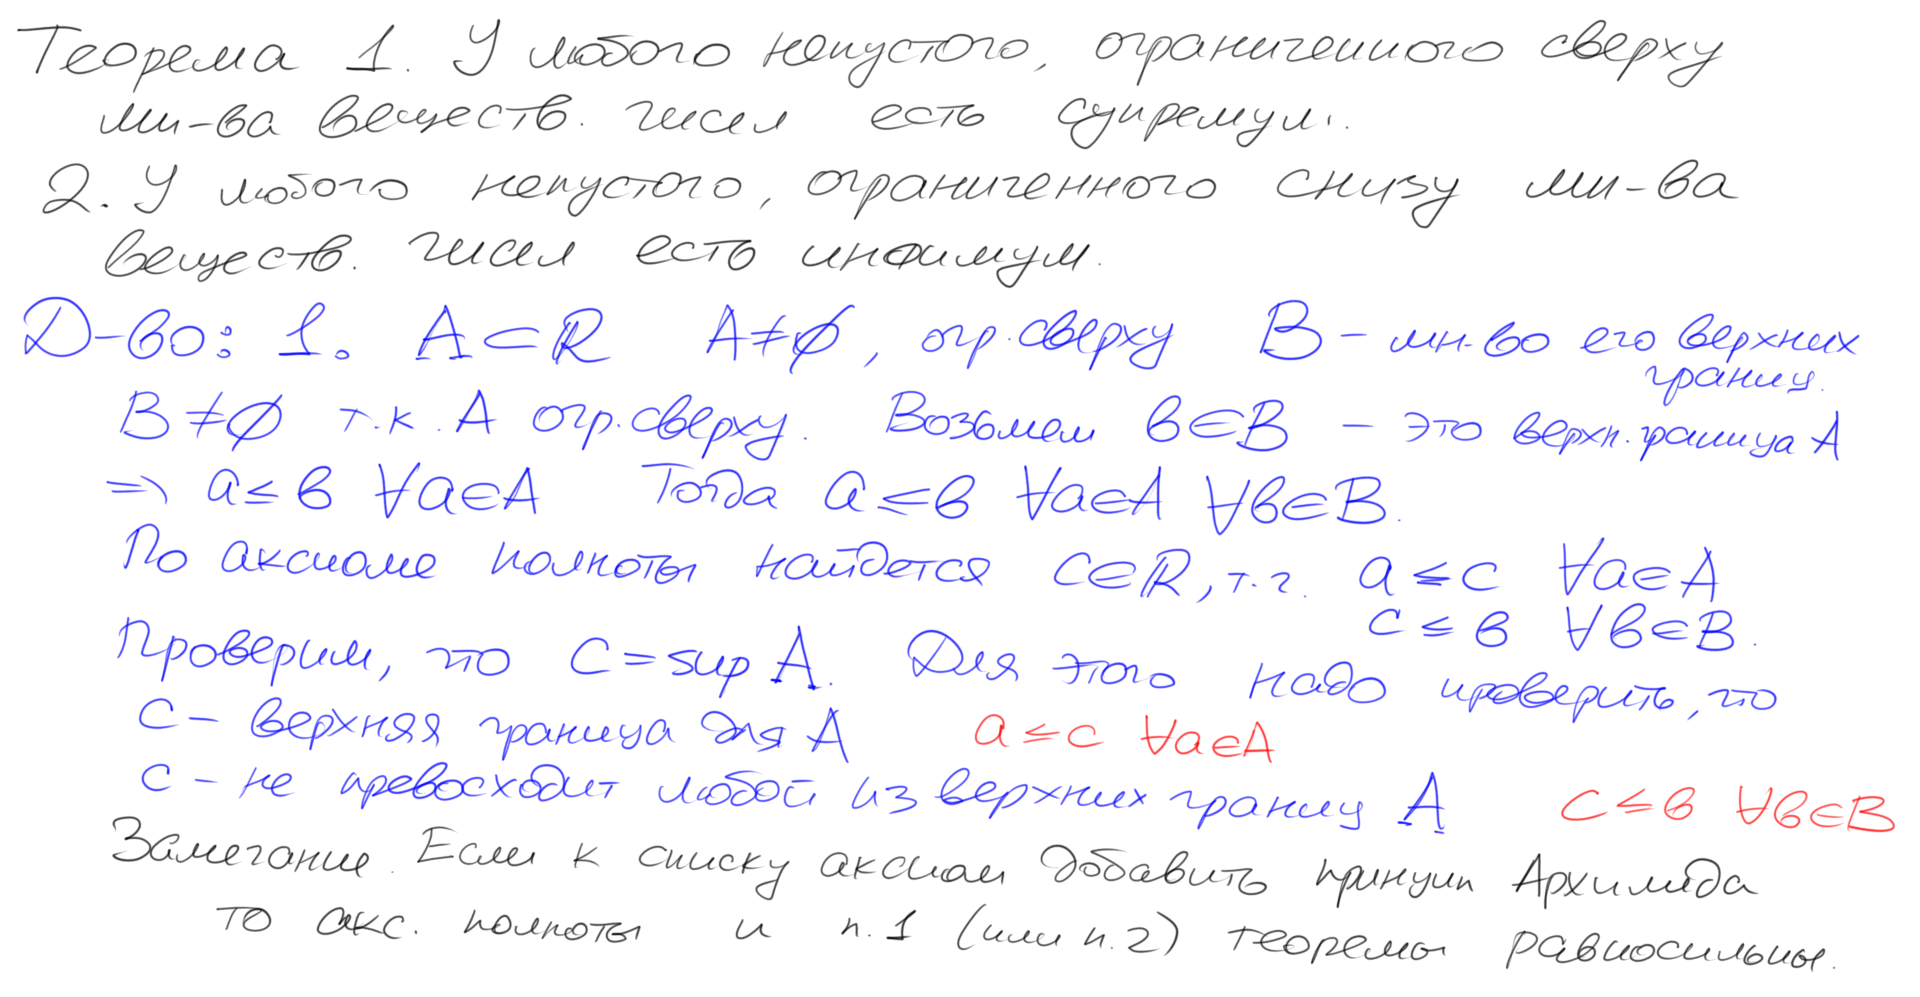 Теорема 1. У любого непустого, ограниченного сверху
мн-ва веществ. чисел есть супремум.
2. У любого непустого, ограниченного снизу мн-ва
веществ. чисел есть инфимум.
Д-во: 1. A⊂R A≠∅, огр. сверху B – мн-во его верхних
границ.
B≠∅ т.к. A огр. сверху. Возьмем b∈B – это верхн. граница A
⇒ a≤b ∀a∈A Тогда a≤b ∀a∈A ∀b∈B.
По аксиоме полноты найдется c∈R, т.ч. a≤c ∀a∈A
c≤b ∀b∈B.
Проверим, что c=sup A. Для этого надо проверить, что
c – верхняя граница для A a≤c ∀a∈A
c – не превосходит любой из верхних границ A c≤b ∀b∈B
Замечание. Если к списку аксиом добавить принцип Архимеда
то акс. полноты и п.1 (или п.2) теоремы равносильны.